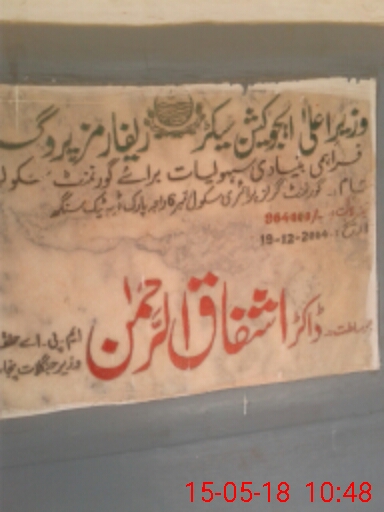 وزیر اعلیٰ ایجوکیشن سیکٹر ریفارمز پروگ
فراہمی بنیادی سہولیات برائے گورنمنٹ سکول
بنام۔ گورنمنٹ گرلز پرائمری سکول نمبر
964000/-
تاریخ: 19-12-2004
ڈاکٹر اشفاق الرحمٰن
ایم۔ پی۔ اے
وزیر جنگلات پنجا
15-05-18 10:48